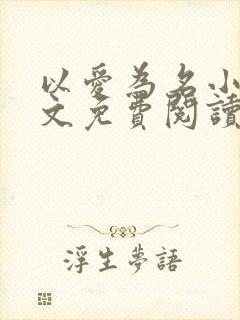 以愛為名小
文免費閱讀
浮生夢語